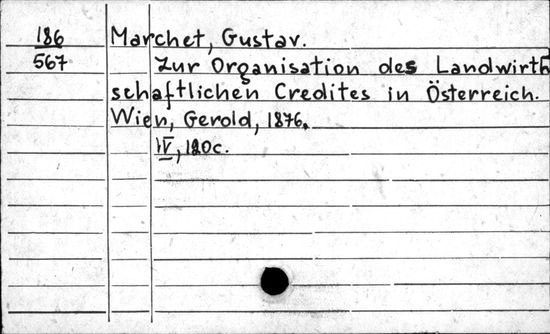 186 Marchet, Gustav.
567 Zur Organisation des Landwirth
schaftlichen Credites in Österreich.
Wien, Gerold, 1876.
IV, 120c.